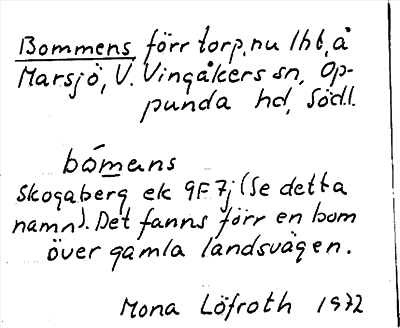 Bommens, förr torp, nu lht, å
Marsjö, V. Vingåkers sn, Op-
punda hd, Södl.
bómans
Skogaberg ek 9F7j (Se detta
namn). Det fanns förr en bom
över gamla landsvägen.
Mona Löfroth 1972